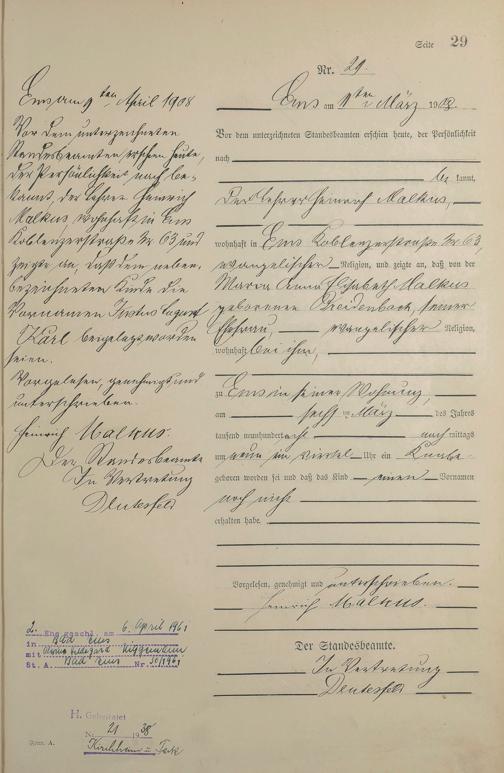 Seite 29
Nr. 29.
Ems am 9ten März 1908.
Vor dem unterzeichneten Standesbeamten erschien heute, der Persönlichkeit
nach
be kannt,
der Lehrer Heinrich Malkus,
wohnhaft in Ems Koblenzerstraße Nr 63,
evangelischer Religion, und zeigte an, daß von der
Maria Anna Elisabeth Malkus
geborenen Breidenbach, seiner
Ehefrau, evangelischer Religion,
wohnhaft bei ihm,
zu Ems in seiner Wohnung,
am sechsten März des Jahres
tausend neunhundert acht nachmittags
um neun ein viertel Uhr ein Knabe
geboren worden sei und daß das Kind einen Vornamen
noch nicht
erhalten habe.
Vorgelesen, genehmigt und unterschrieben.
Heinrich Malkus.
Der Standesbeamte.
In Vertretung
Ems am ten April 1908
Vor dem unterzeichneten
Standesbeamten erschien heute,
der Persönlichkeit nach be-
kannt, der Lehrer Heinrich
Malkus, wohnhaft in Ems
Koblenzerstraße Nr 63, und
zeigte an, daß dem neben-
bezeichneten Kinde die
Vornamen Justus August
Karl beigelegt worden
seien.
Vorgelesen, genehmigt und
unterschrieben.
Heinrich Malkus.
Der Standesbeamte
In Vertretung
2. Eheschl. am 6. April 1961
in Bad Ems
mit Hildegard
St. A. Bad Ems Nr. 30/1961
H. Geheiratet
Nr. 21 1938
Kirchheim u. Teck
Form. A.